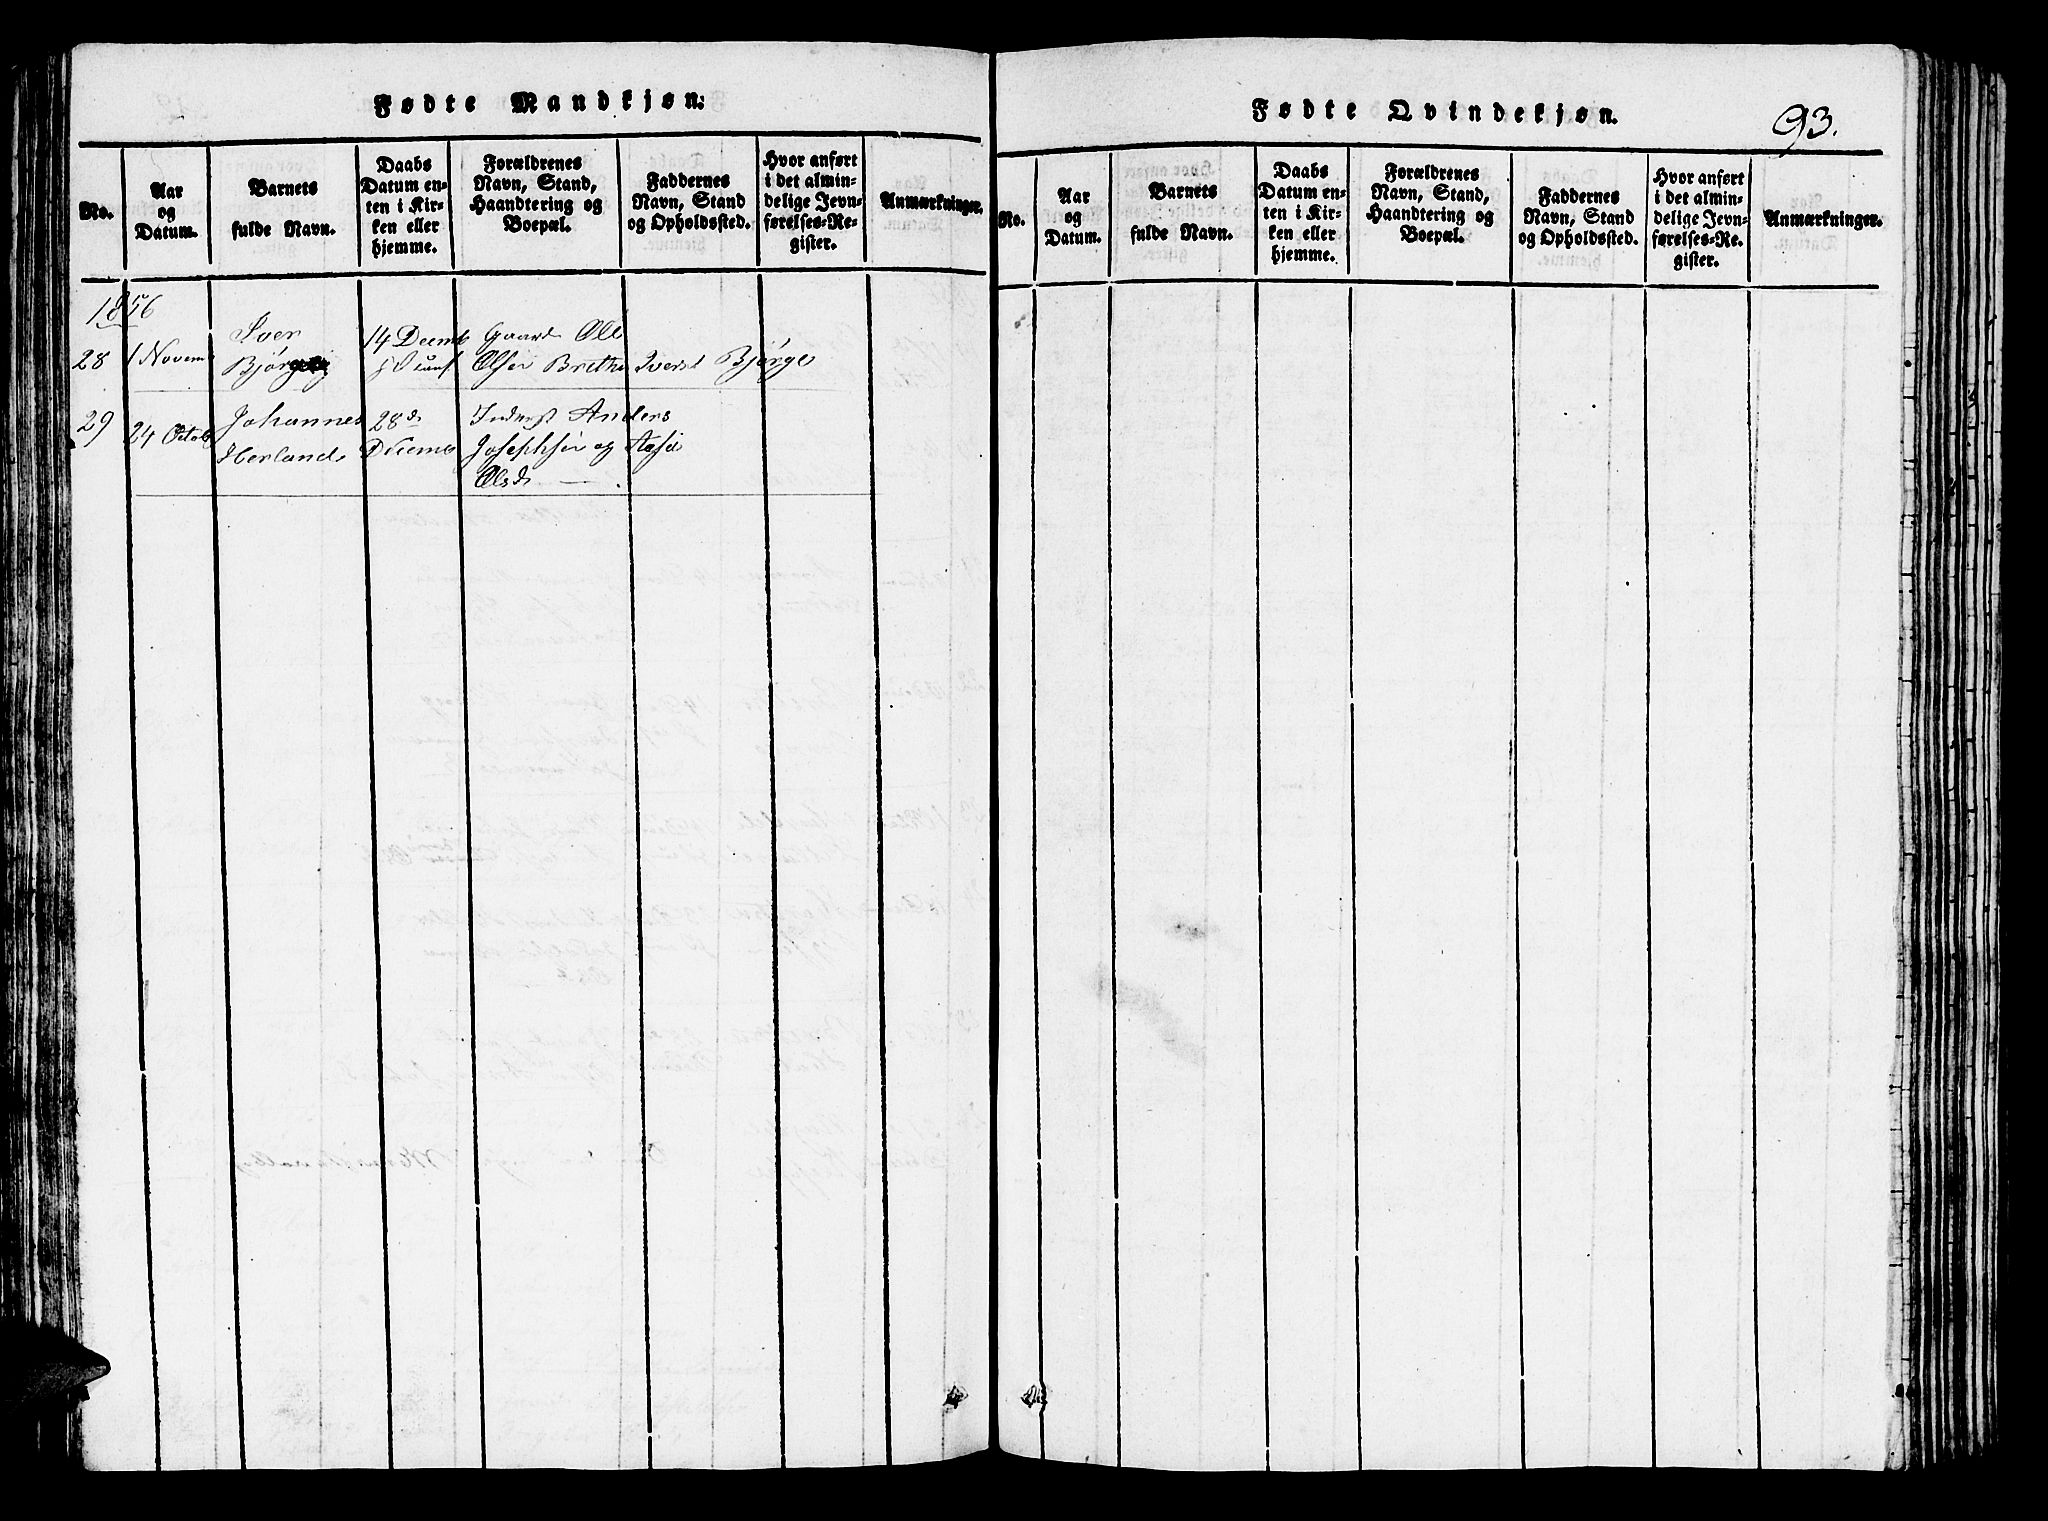 Fødte Mandkjøn:
No.
Aar
og
Datum.
Barnets
fulde Navn.
Daabs
Datum en-
ten i Kir-
ken eller
hjemme.
Forældrenes
Navn, Stand,
Haandtering og
Boepæl.
Faddernes
Navn, Stand
og Opholdssted.
Hvor anført
i det almin-
delige Jevn-
førelses-Re-
gister.
Anmærkninger.
1856
28
1 Novem
Iver
Bjørge
14 Decemb
Gaard Ole
Olsen Brethe Iversd Bjørge
29
24 Octob
Johannes
Herland
28d
Decemb
Inderst Anders
Josephsen og Aase
Olsd
Fødte Qvindekjøn.
93.
No.
Aar
og
Datum.
Barnets
fulde Navn.
Daabs
Datum en-
ten i Kir-
ken eller
hjemme.
Forældrenes
Navn, Stand,
Haandtering og
Boepæl.
Faddernes
Navn, Stand
og Opholdssted.
Hvor anført
i det almin-
delige Jevn-
førelses-Re-
gister.
Anmærkninger.